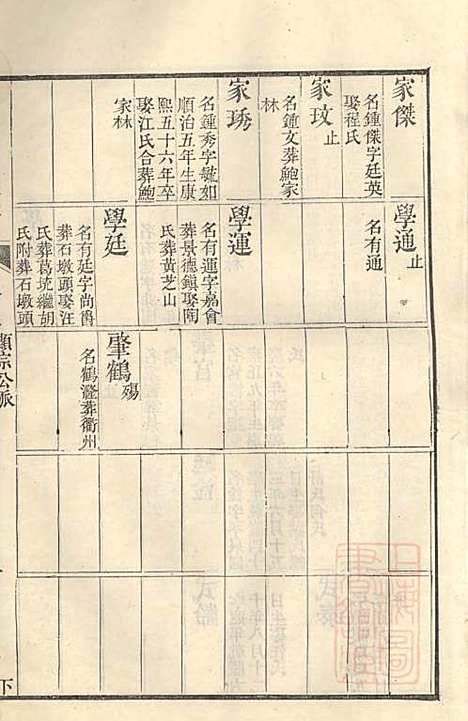 家傑
名鍾傑字廷英
娶程氏
家玟
止
名鍾文葬鮑家
林
家琇
名鍾秀字毓如
順治五年生康
熙五十六年卒
娶江氏合葬鮑
家林
學通
止
名有通
學運
名有運字嘉會
葬景德鎮娶陶
氏葬黃芝山
學廷
名有廷字尚爵
葬石墩頭娶汪
氏葬葛坑繼胡
氏附葬石墩頭
肇鶴
殤
名鶴澄葬衢州
顯宗公派
下